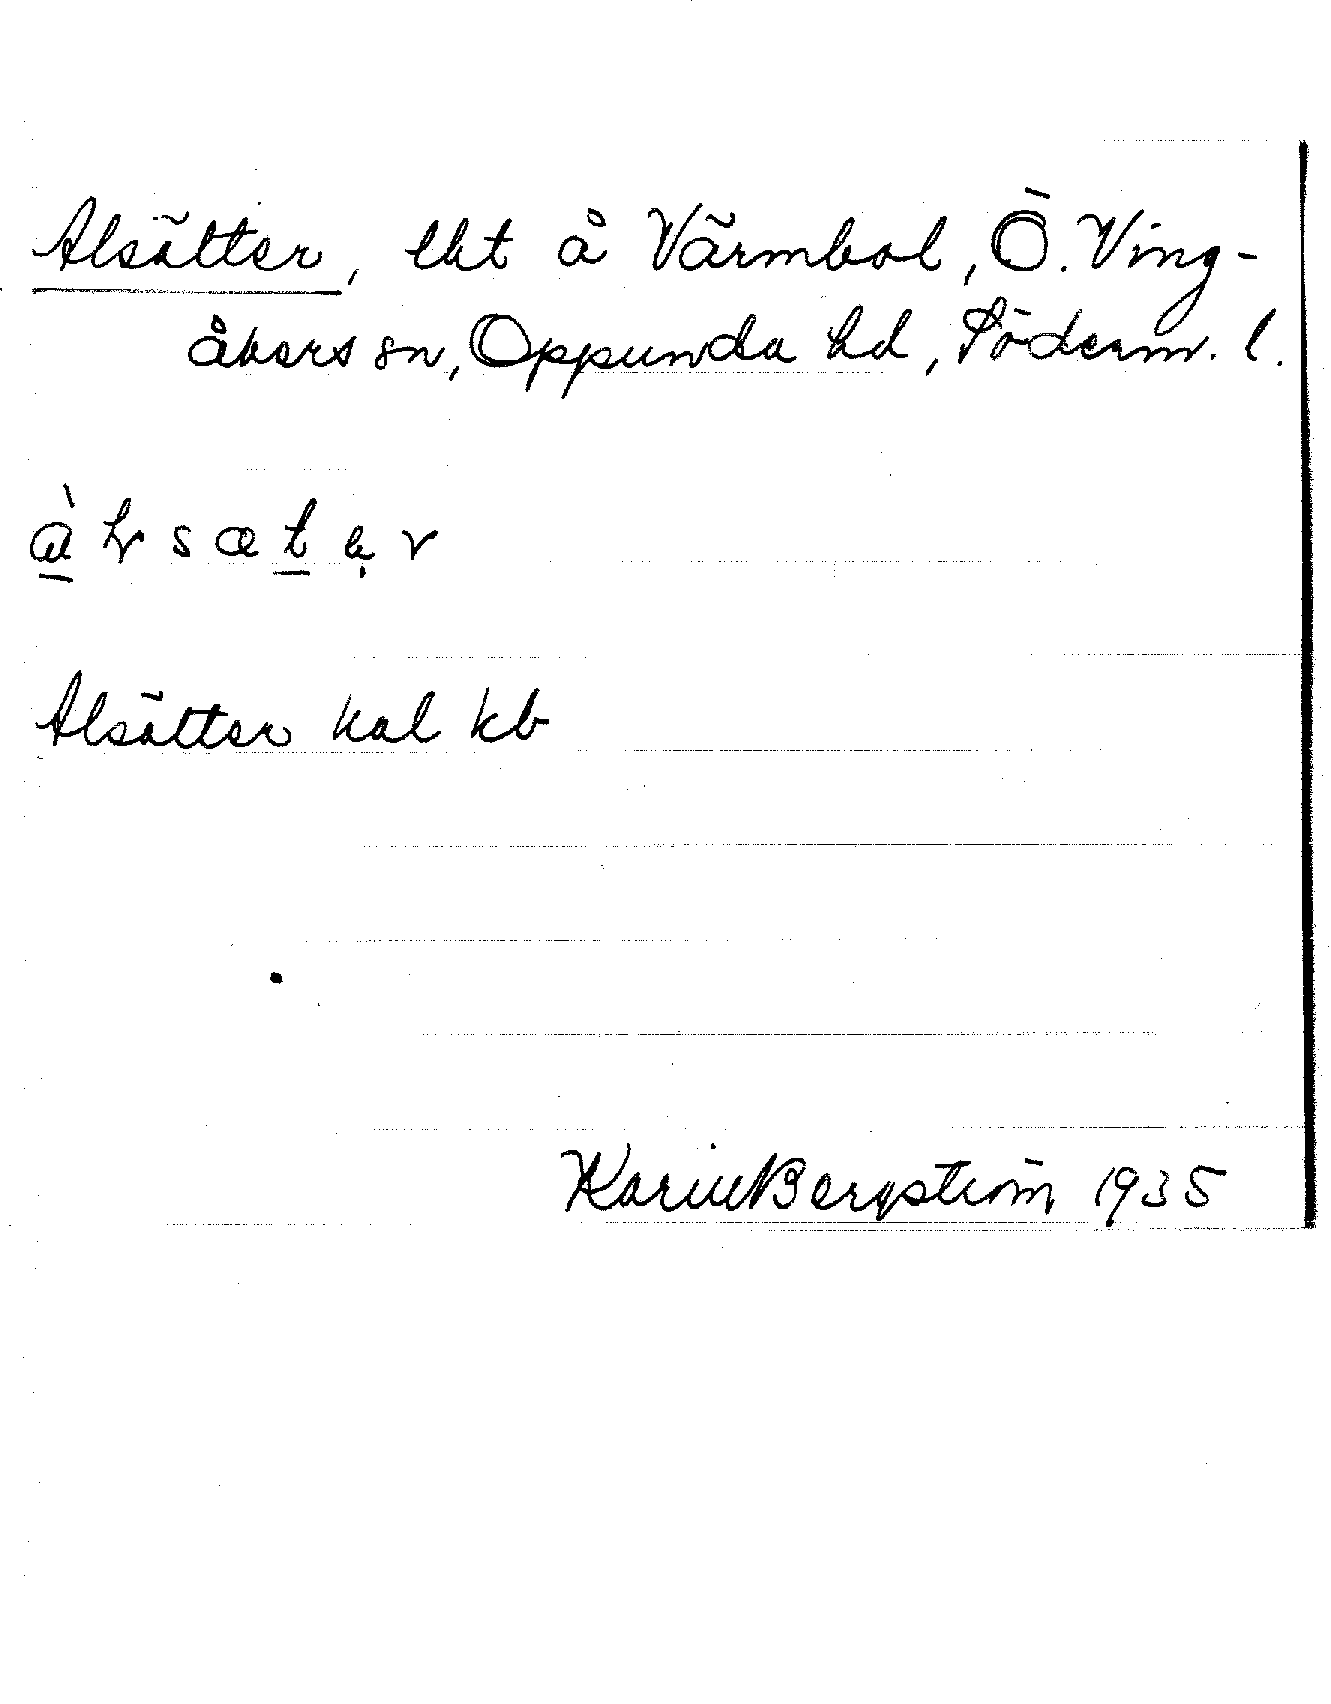 Alsätter, lht å Värmbol, Ö. Ving-
åkers sn, Oppunda hd, Söderm. l.
Alsätter kal kb
Karin Bergström 1935